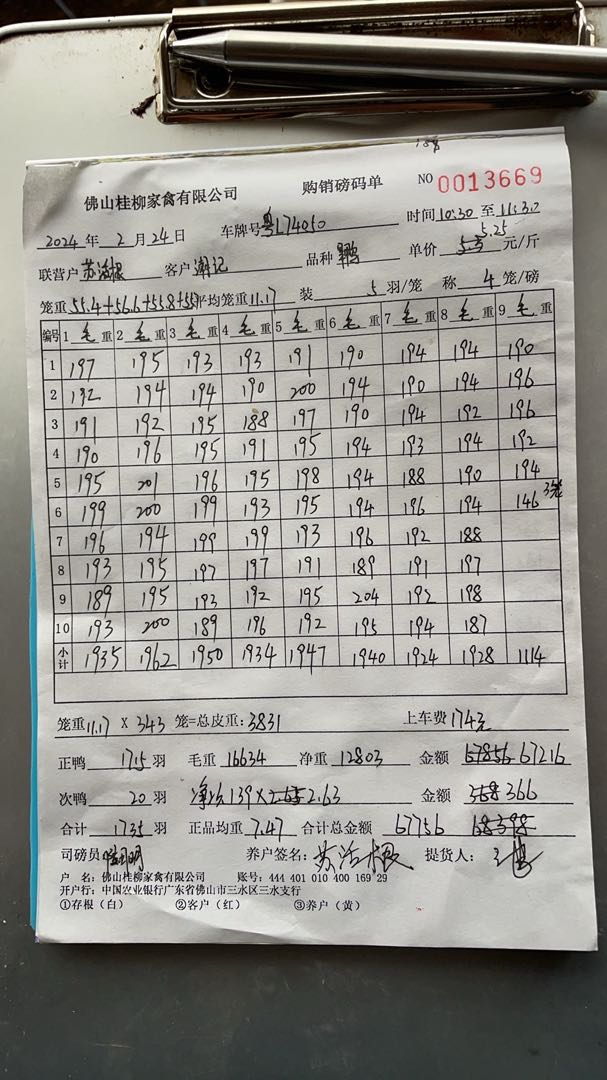 佛山桂柳家禽有限公司 购销磅码单 NO 0013669
2024 年 2 月 24 日 车牌号 粤L74050 时间 10:30 至 11:30
5.25
联营户 苏活根 客户 潮记 品种 单价 元/斤
笼重 55.4+56.6+55.8+55.7 平均笼重 11.17 装 5 羽/笼 称 4 笼/磅
编号 1 毛 重 2 毛 重 3 毛 重 4 毛 重 5 毛 重 6 毛 重 7 毛 重 8 毛 重 9 毛 重
1 197 195 193 193 191 190 194 194 190
2 192 194 194 190 200 194 190 194 196
3 191 192 195 188 197 190 194 192 196
4 190 196 195 191 195 194 193 194 192
5 195 201 196 195 198 194 188 190 194
6 199 200 199 193 195 194 196 194 146 3笼
7 196 194 199 199 193 196 192 188
8 193 195 197 197 191 189 191 197
9 189 195 193 192 195 204 192 198
10 193 200 189 196 192 195 194 187
小计 1935 1962 1950 1934 1947 1940 1924 1928 1114
笼重 11.17 X 343 笼=总皮重: 3831 上车费 174元
正鸭 1715 羽 毛重 16634 净重 12803 金额 67856 67216
次鸭 20 羽 净重 139 X 2.63 金额 368 366
合计 1735 羽 正品均重 7.47 合计总金额 67756 68398
司磅员 养户签名: 苏活根 提货人:
户 名: 佛山桂柳家禽有限公司 账号: 444 401 010 400 169 29
开户行: 中国农业银行广东省佛山市三水区三水支行
①存根（白） ②客户（红） ③养户（黄）